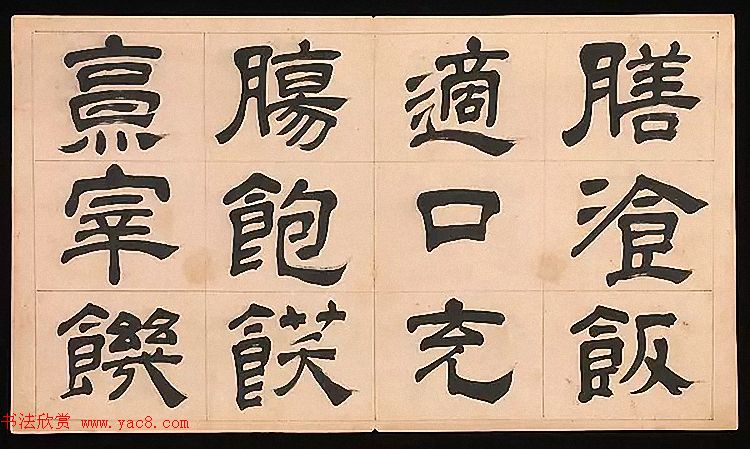 膳湌飯
適口充
腸飽飫
烹宰饑
书法欣赏 www.yac8.com